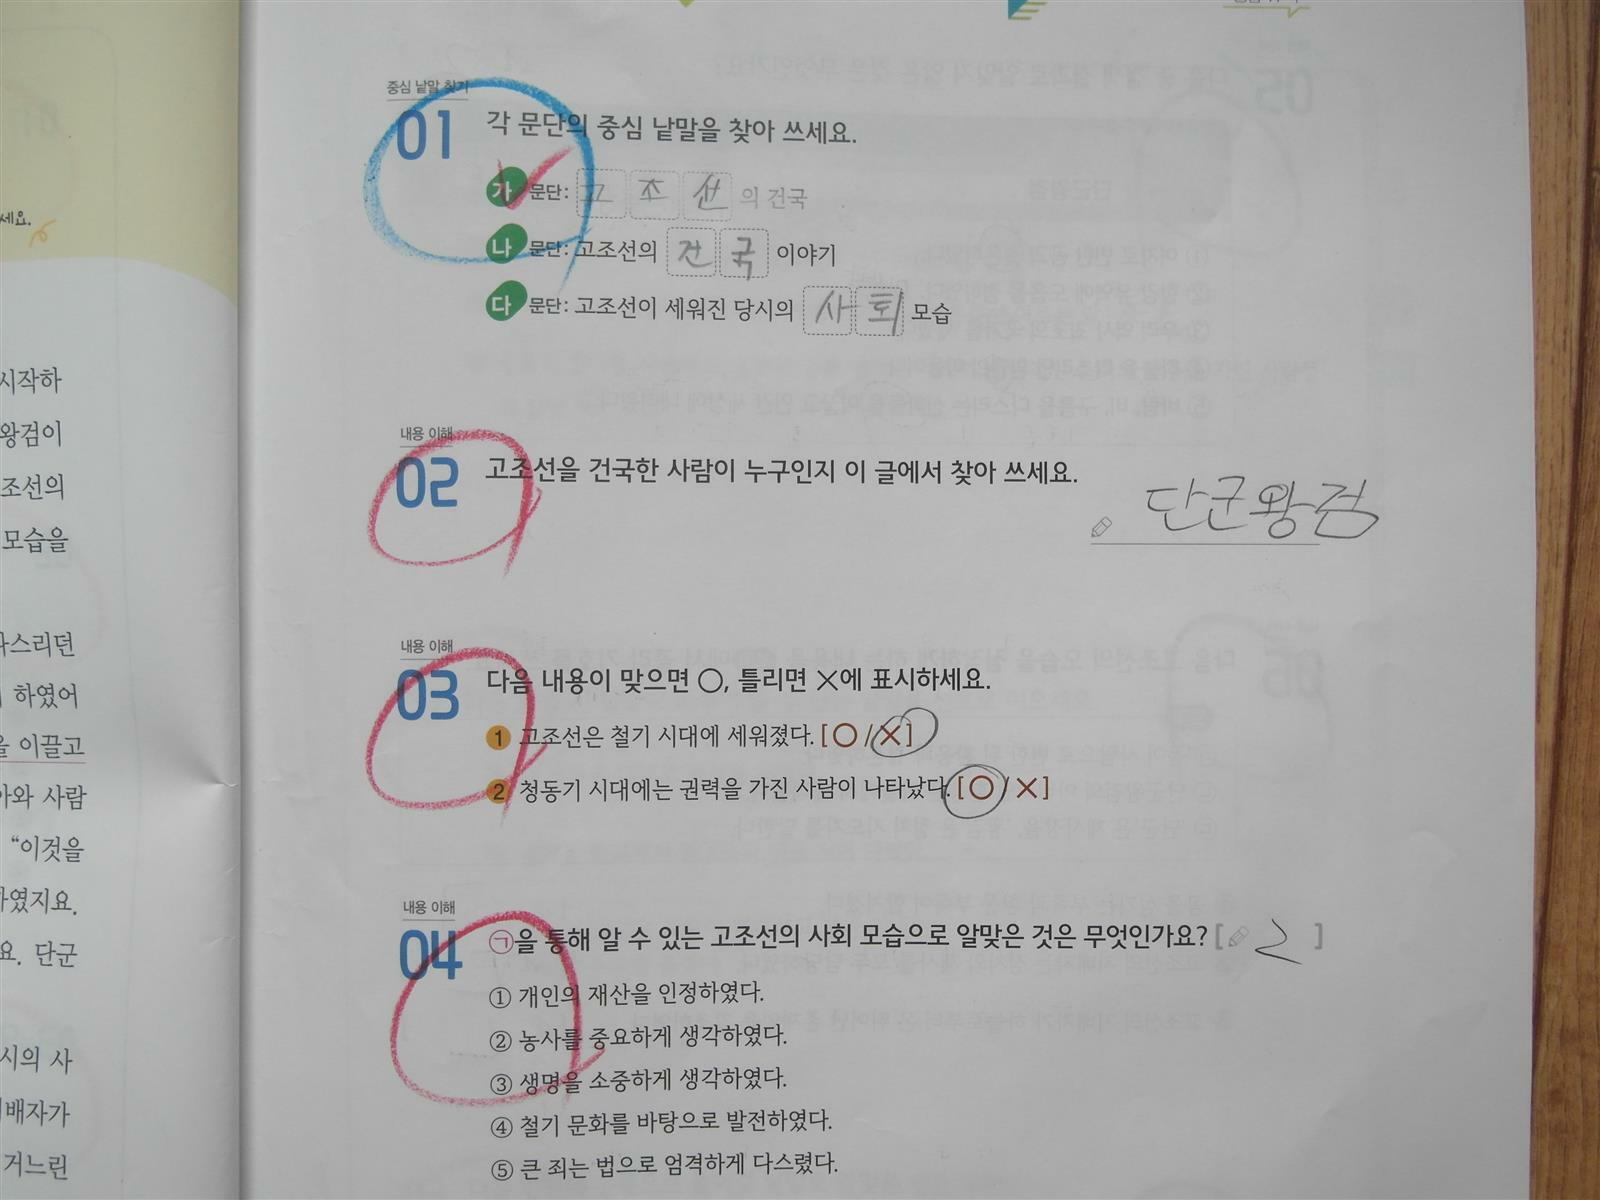 세요.
시작하
왕검이
조선의
모습을
다스리던
하였어
을 이끌고
아와 사람
“이것을
하였지요.
요. 단군
시의 사
배자가
거느린
중심 낱말 찾기
01 각 문단의 중심 낱말을 찾아 쓰세요.
가 문단: 고조선의 건국
나 문단: 고조선의 건국 이야기
다 문단: 고조선이 세워진 당시의 사회 모습
내용 이해
02 고조선을 건국한 사람이 누구인지 이 글에서 찾아 쓰세요.
단군왕검
내용 이해
03 다음 내용이 맞으면 ○, 틀리면 ×에 표시하세요.
1 고조선은 철기 시대에 세워졌다. [○/×]
2 청동기 시대에는 권력을 가진 사람이 나타났다. [○/×]
내용 이해
04 ㉠을 통해 알 수 있는 고조선의 사회 모습으로 알맞은 것은 무엇인가요? [2]
① 개인의 재산을 인정하였다.
② 농사를 중요하게 생각하였다.
③ 생명을 소중하게 생각하였다.
④ 철기 문화를 바탕으로 발전하였다.
⑤ 큰 죄는 법으로 엄격하게 다스렸다.